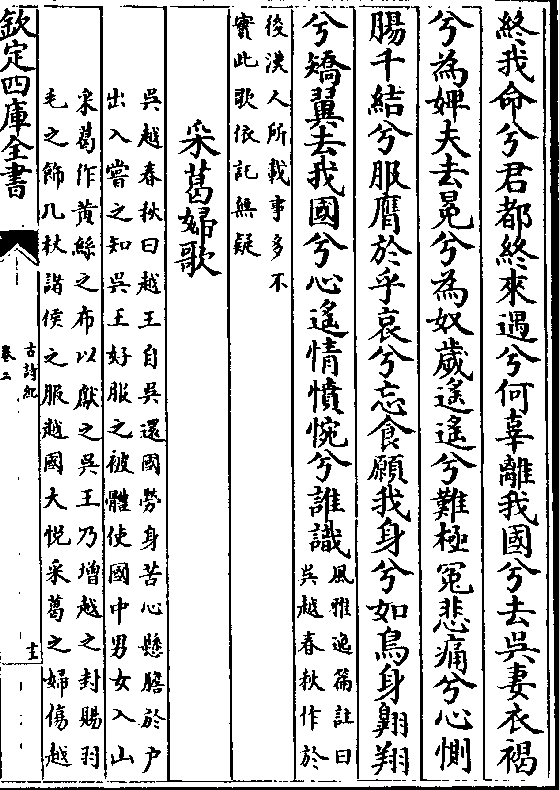 終我命兮君都終來遇兮何辜離我國兮去吳妻衣褐
兮為婢夫去冕兮為奴歲遙遙兮難極冤悲痛兮心惻
腸千結兮服膺於乎哀兮忘食願我身兮如鳥身翺翔
兮矯翼去我國兮心遙情憤惋兮誰識
風雅逸篇註曰
吳越春秋作於
後漢人所載事多不
實此歌依託無疑
采葛婦歌
吳越春秋曰越王自吳還國勞身苦心懸膽於户
出入嘗之知吳王好服之被體使國中男女入山
采葛作黄絲之布以獻之吳王乃增越之封賜羽
毛之飾几杖諸侯之服越國大悦采葛之婦傷越
欽定四庫全書
古詩紀
卷二